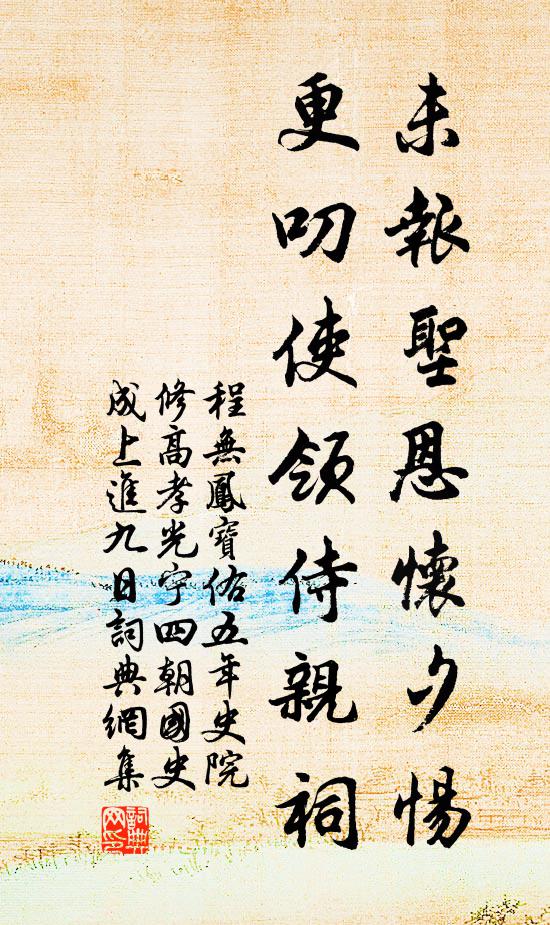 未報聖恩懷夕惕
更叨使領侍親祠
程無鳳寶佑五年史院
修高孝光宁四朝國史
成上進九日詞典網集
詞典网印